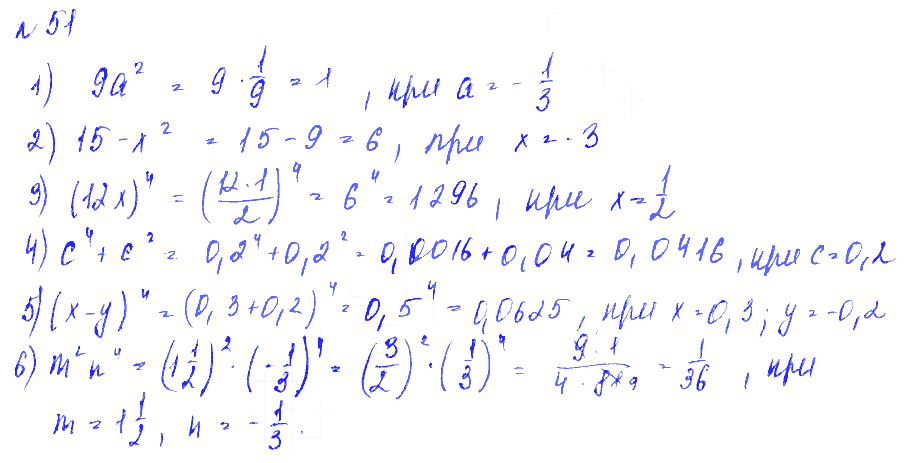 № 51
1) 9a² = 9 · 1/9 = 1, при a = - 1/3
2) 15 - x² = 15 - 9 = 6, при x = - 3
3) (12x)⁴ = (12 · 1/2)⁴ = 6⁴ = 1296, при x = 1/2
4) c⁴ + c² = 0,2⁴ + 0,2² = 0,0016 + 0,04 = 0,0416, при c = 0,2
5) (x - y)⁴ = (0,3 + 0,2)⁴ = 0,5⁴ = 0,0625, при x = 0,3; y = -0,2
6) m² n⁴ = (1 1/2)² · (- 1/3)⁴ = (3/2)² · (1/3)⁴ = 9 · 1 / 4 · 81 9 = 1/36, при
m = 1 1/2, n = - 1/3.